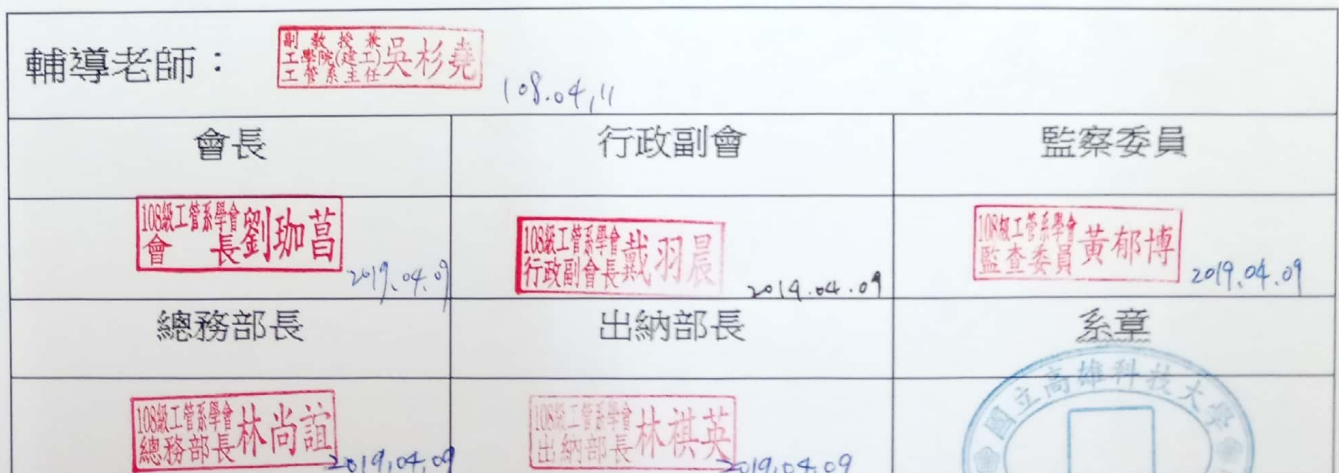 輔導老師：
副教授兼
工學院(建工)
工管系主任
吳杉堯
108.04.11
會長
行政副會
監察委員
108級工管系學會
會長
劉珈菖
2019.04.09
108級工管系學會
行政副會長
戴羽晨
2019.04.09
108級工管系學會
監查委員
黃郁博
2019.04.09
總務部長
出納部長
系章
108級工管系學會
總務部長
林尚誼
2019.04.09
108級工管系學會
出納部長
林祺英
2019.04.09
國立高雄科技大學